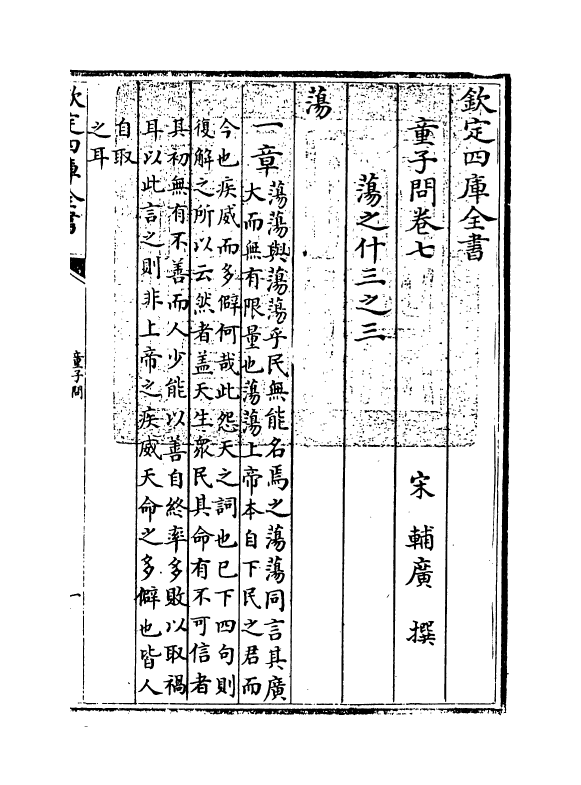 欽定四庫全書
童子問卷七
宋 輔廣 撰
蕩之什三之三
蕩
一章蕩蕩與蕩蕩乎民無能名焉之蕩蕩同言其廣
大而無有限量也蕩蕩上帝本自下民之君而
今也疾威而多僻何哉此怨天之詞也已下四句則
復解之所以云然者蓋天生衆民其命有不可信者
其初無有不善而人少能以善自終率多敗以取禍
耳以此言之則非上帝之疾威天命之多僻也皆人
自取
之耳
欽定四庫全書
童子問
一